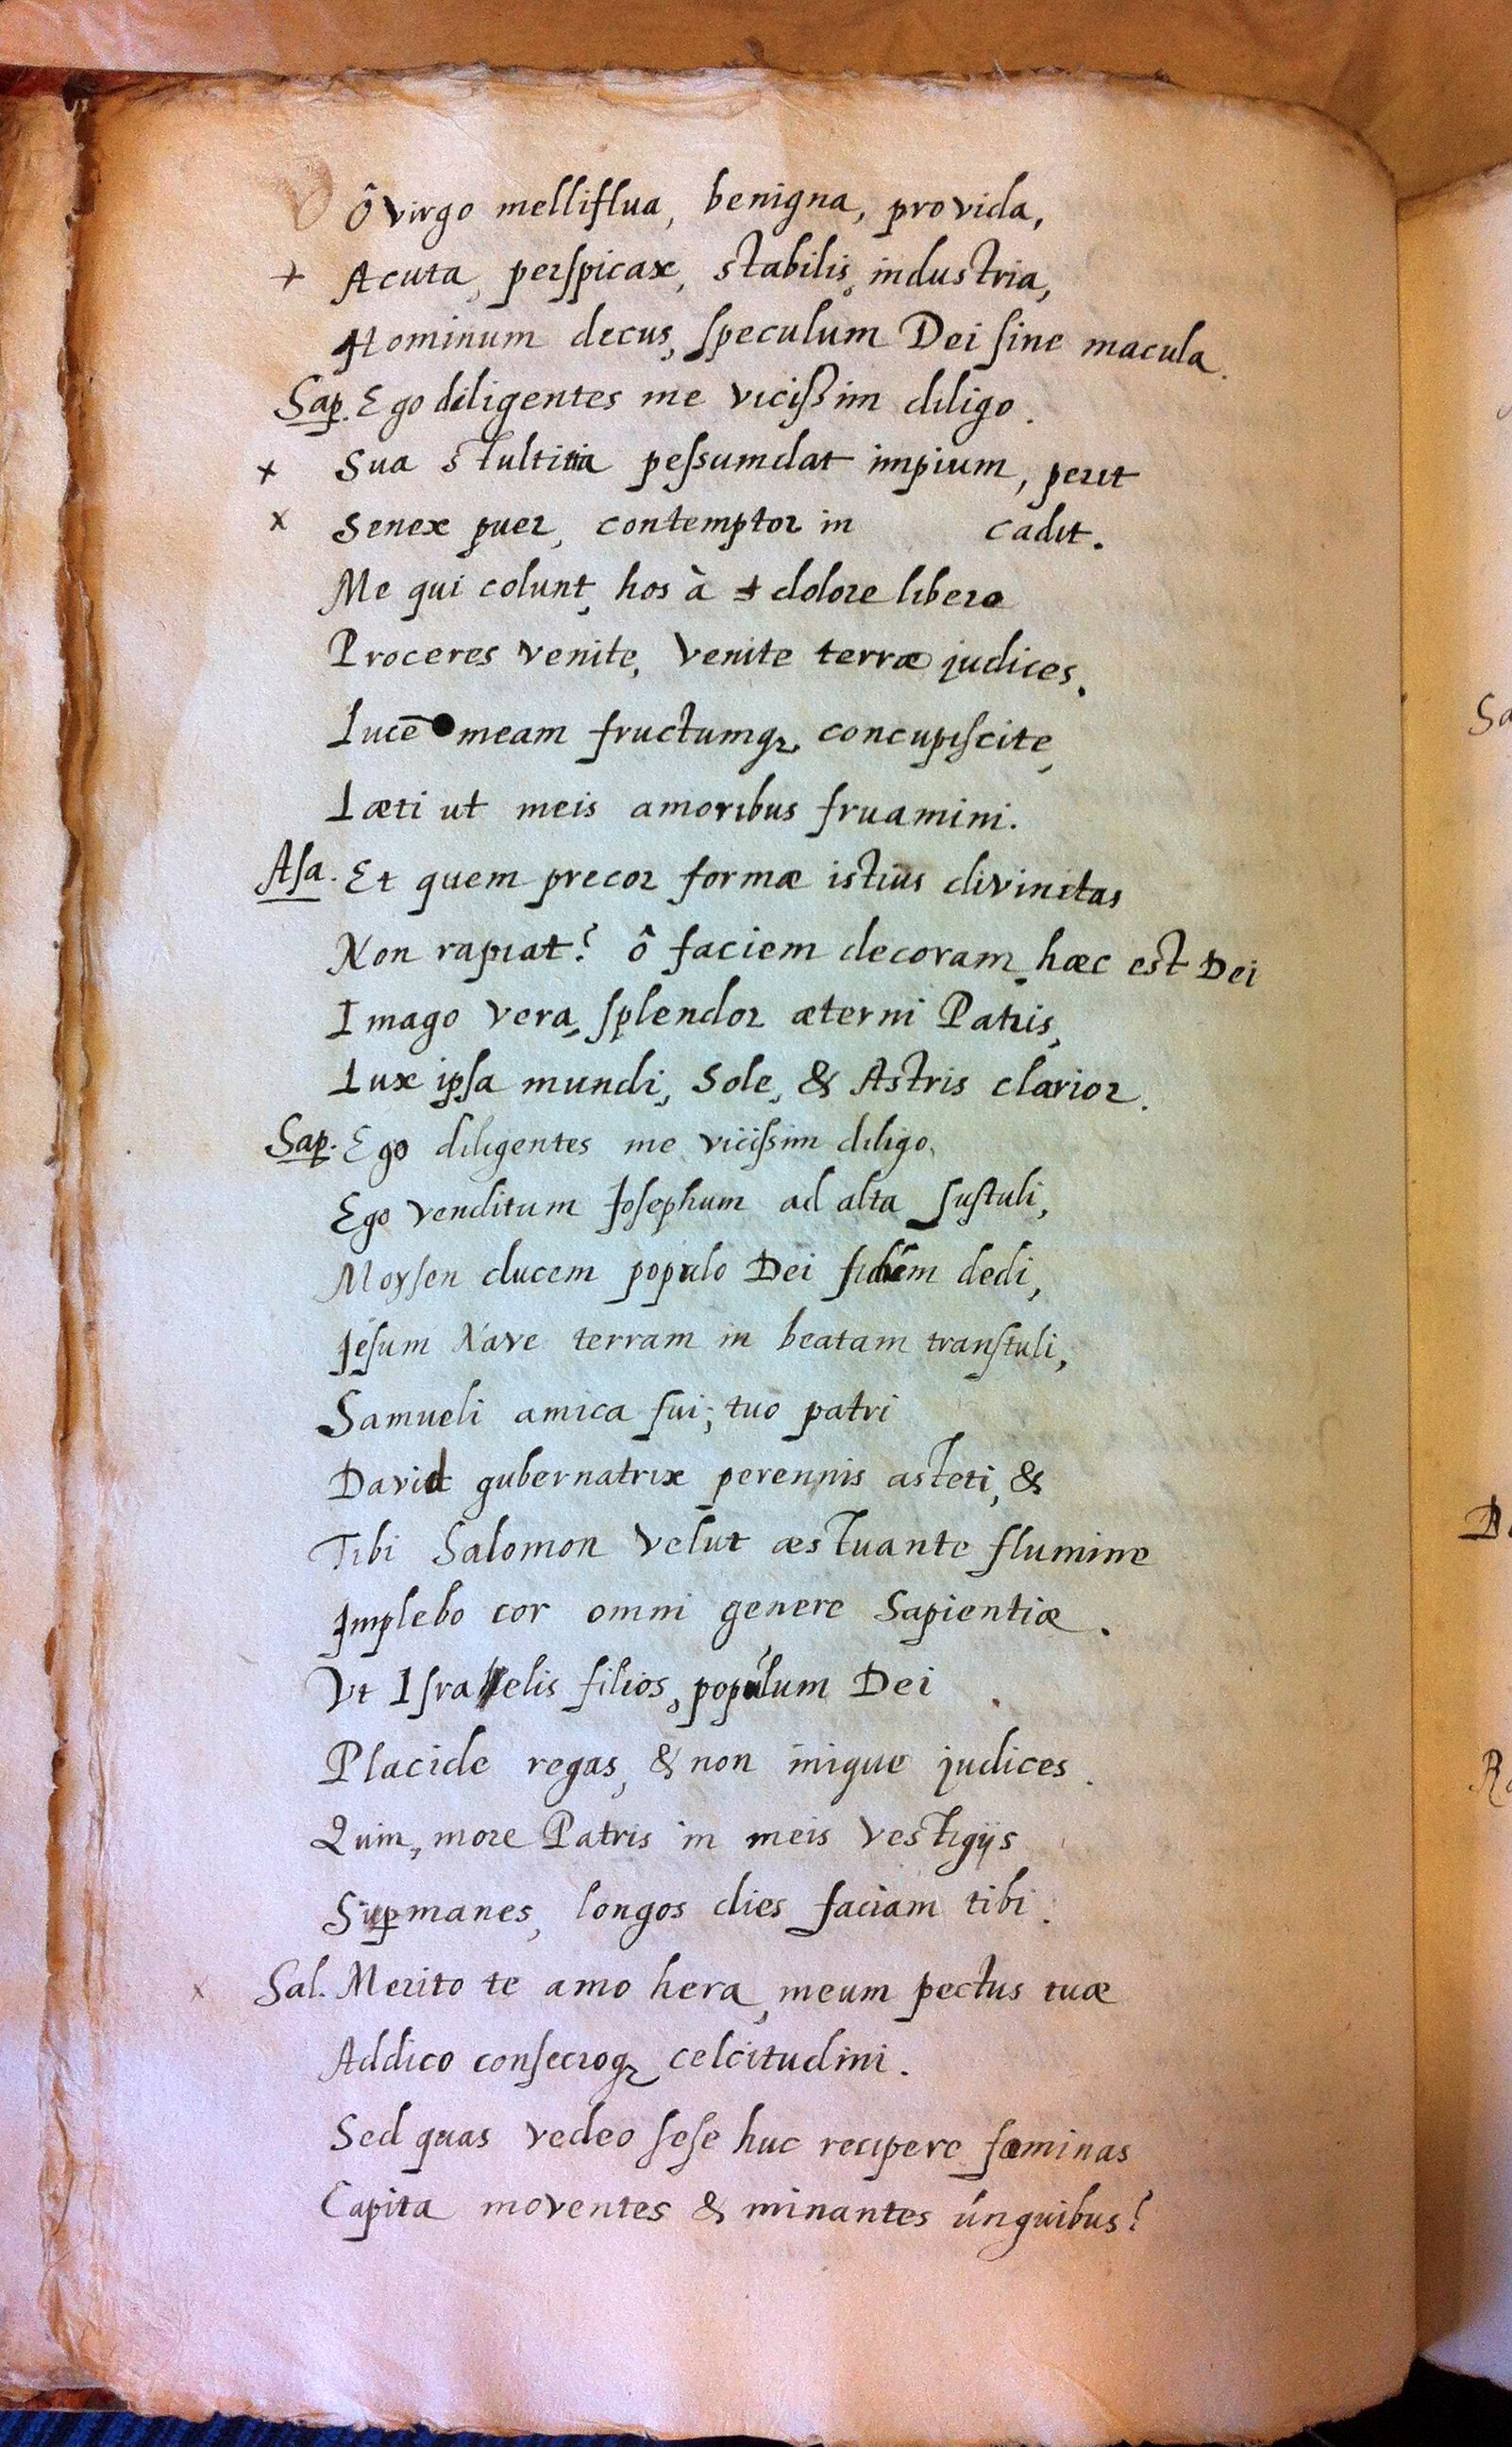 Ô virgo melliflua, benigna, provida,
+ Acuta, perspicax, stabilis, industria,
Hominum decus, speculum Dei sine macula.
Sap. Ego diligentes me vicissim diligo.
x Sua stultitia pessumdat impium, perit
x Senex puer, contemptor in cadit.
Me qui colunt, hos à dolore libero
Proceres venite, venite terræ judices.
Lucē meam fructumq; concupiscite,
Læti ut meis amoribus fruamini.
Asa. Et quem precor formæ istius divinitas
Non rapiat? ô faciem decoram, hæc est Dei
Imago vera, splendor æterni Patris,
Lux ipsa mundi, Sole, & Astris clarior.
Sap. Ego diligentes me vicissim diligo,
Ego venditum Josephum ad alta sustuli,
Moysen ducem populo Dei dedi,
Jesum Nave terram in beatam transtuli,
Samueli amica fui; tuo patri
David gubernatrix perennis asteti, &
Tibi Salomon velut æstuante flumine
Implebo cor omni genere Sapientiæ.
Vt Israelis filios, populum Dei
Placide regas, & non inique judices.
Quin, more Patris in meis vestigijs
Si p̱manes, longos dies faciam tibi.
x Sal. Merito te amo hera, meum pectus tuæ
Addico consecroq; celcitudini.
Sed quas vedeo sese huc recipere fœminas
Capita moventes & minantes únguibus?